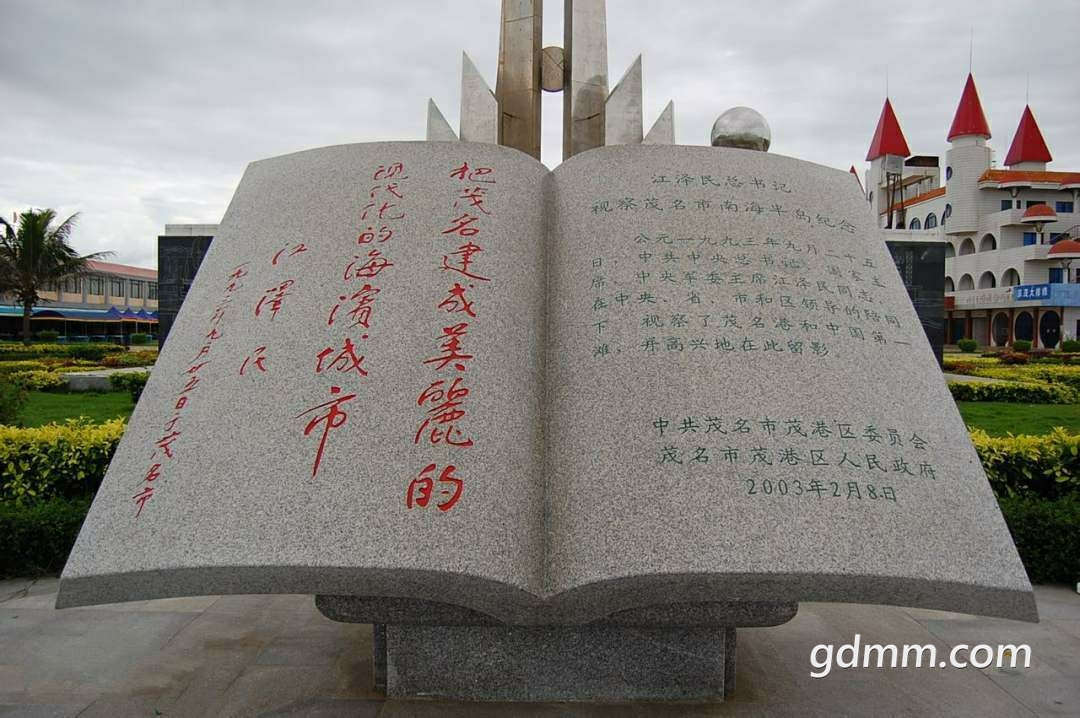 把茂名建成美麗的
现代化的海濱城市
江澤民
一九九三年九月廿五日于茂名市
江泽民总书记
视察茂名市南海半岛纪念
公元一九九三年九月二十五
日，中共中央总书记、国家主
席、中央军委主席江泽民同志
在中央、省、市和区领导的陪同
下，视察了茂名港和中国第一
滩，并高兴地在此留影。
中共茂名市茂港区委员会
茂名市茂港区人民政府
2003年2月8日
gdmm.com